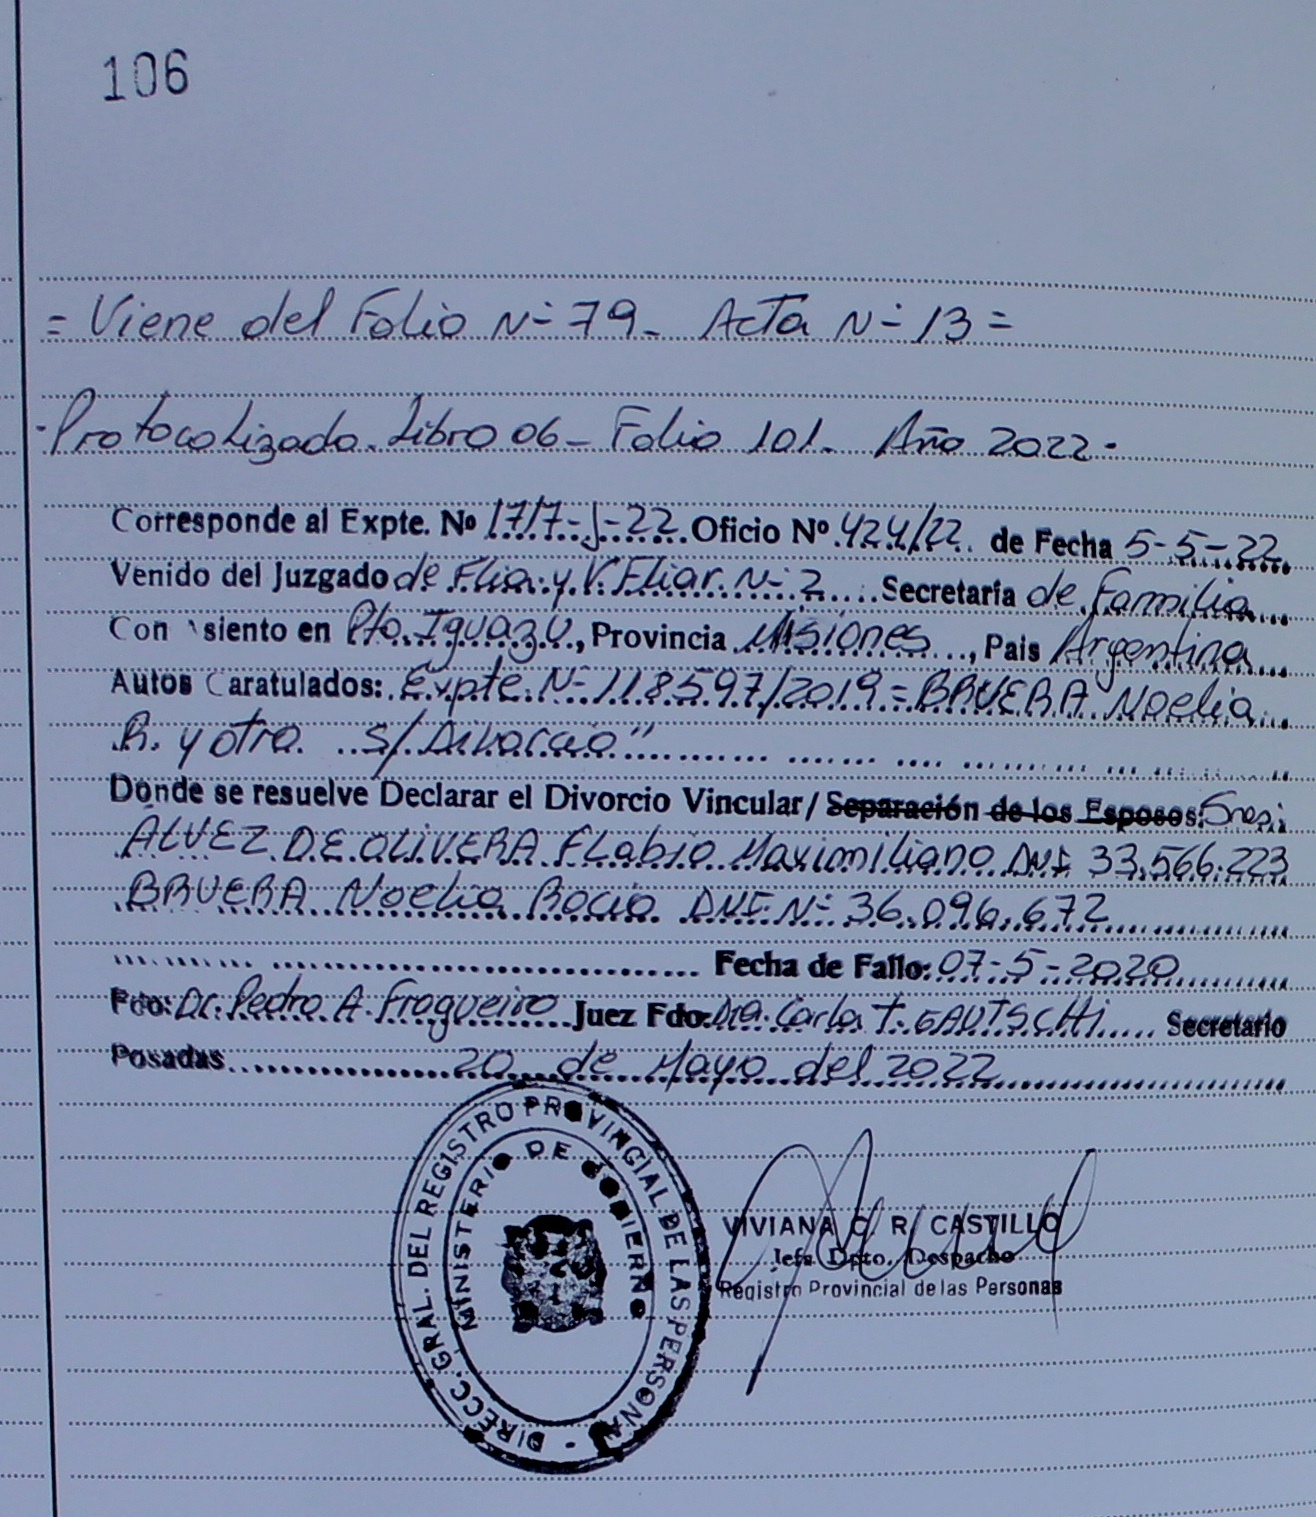 106
= Viene del Folio Nº 79_ Acta Nº 13 =
- Protocolizado. Libro 06_ Folio 101_ Año 2022 -
Corresponde al Expte. Nº 1717-J-22 Oficio Nº 424/22 de Fecha 5-5-22
Venido del Juzgado de Flia. y V. Fliar. Nº 2 Secretaría de Familia
Con siento en Pto. Iguazú, Provincia Misiones, Pais Argentina
Autos Caratulados: Expte. Nº 118597/2019 = BRUERA Noelia
R. y otro s/Divorcio"
Donde se resuelve Declarar el Divorcio Vincular/ Separación de los Esposos: Sres.
ALVEZ DE OLIVERA Flabio Maximiliano DNI 33.566.223
BRUERA Noelia Rocio DNI Nº 36.096.672
Fecha de Fallo: 07-5-2020
Fdo: Dr. Pedro A. Fragueiro Juez Fdo: Dra. Carla T. GAUTSCHI Secretario
Posadas 20 de Mayo del 2022
DIRECC. GRAL. DEL REGISTRO PROVINCIAL DE LAS PERSONAS -
MINISTERIO DE GOBIERNO
VIVIANA C. R. CASTILLO
Jefa Dpto. Despacho
Registro Provincial de las Personas